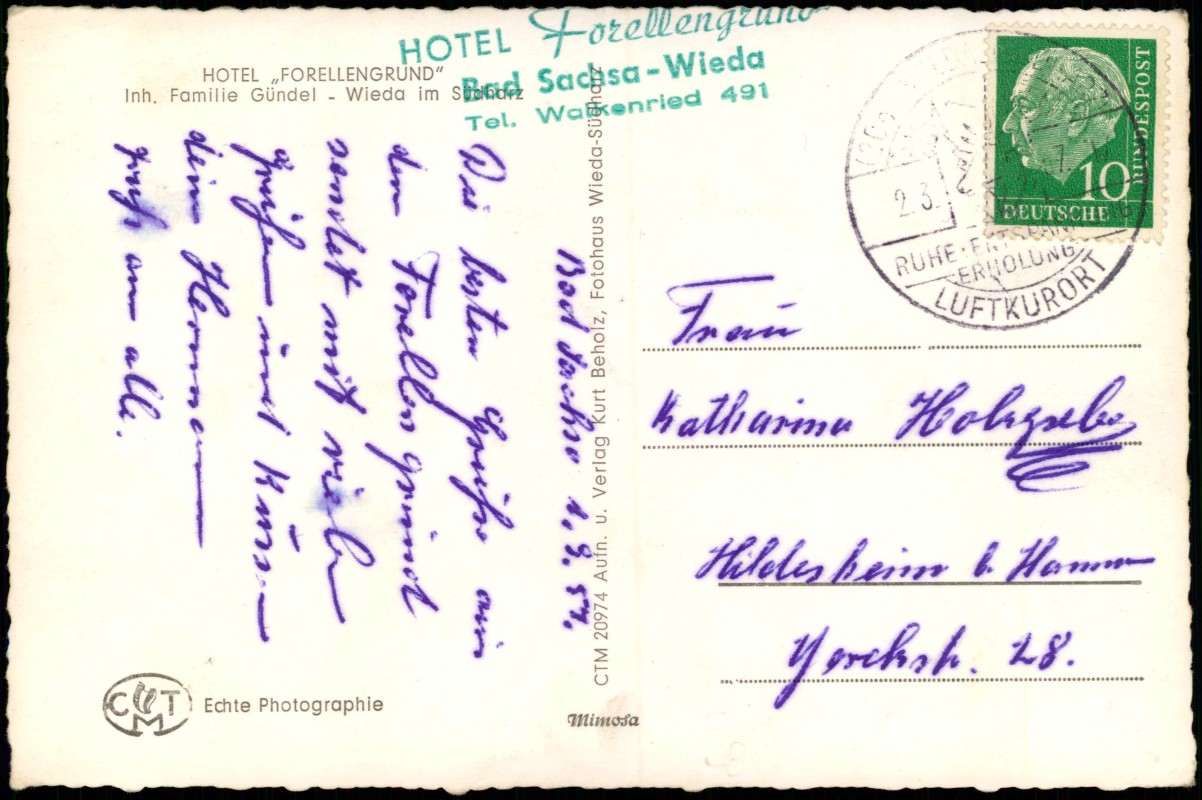 HOTEL „FORELLENGRUND“
Inh. Familie Gündel - Wieda im Südharz
HOTEL Forellengrund
Bad Sachsa-Wieda
Tel. Walkenried 491
Bad Sachsa 1.3.57.
Die besten Grüße aus
dem Forellengrund
sendet mit viele
grüßen und Küssen
dein Hermann
gruß an alle.
CTM 20974 Aufn. u. Verlag Kurt Beholz, Fotohaus Wieda-Südharz
CMT
Echte Photographie
Mimosa
2.3.
RUHE · ENTSPANNUNG
-ERHOLUNG
LUFTKURORT
DEUTSCHE
BUNDESPOST
10
Frau
Katharina Holzgrebe
Hildesheim b Hannov
Yorckstr. 28.